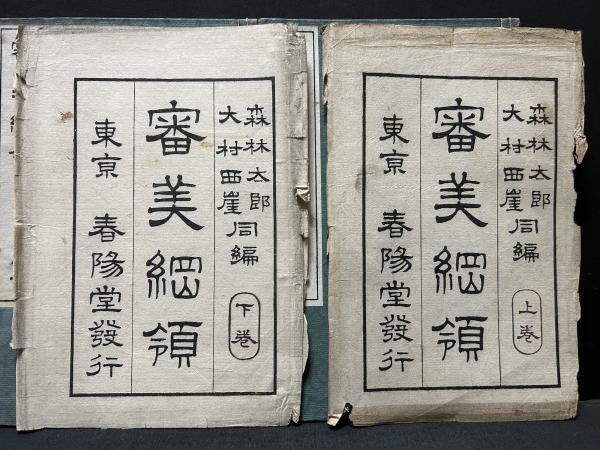 森林太郎
大村西崖同編
審美綱領
上卷
東亰 春陽堂發行
森林太郎
大村西崖同編
審美綱領
下卷
東亰 春陽堂發行